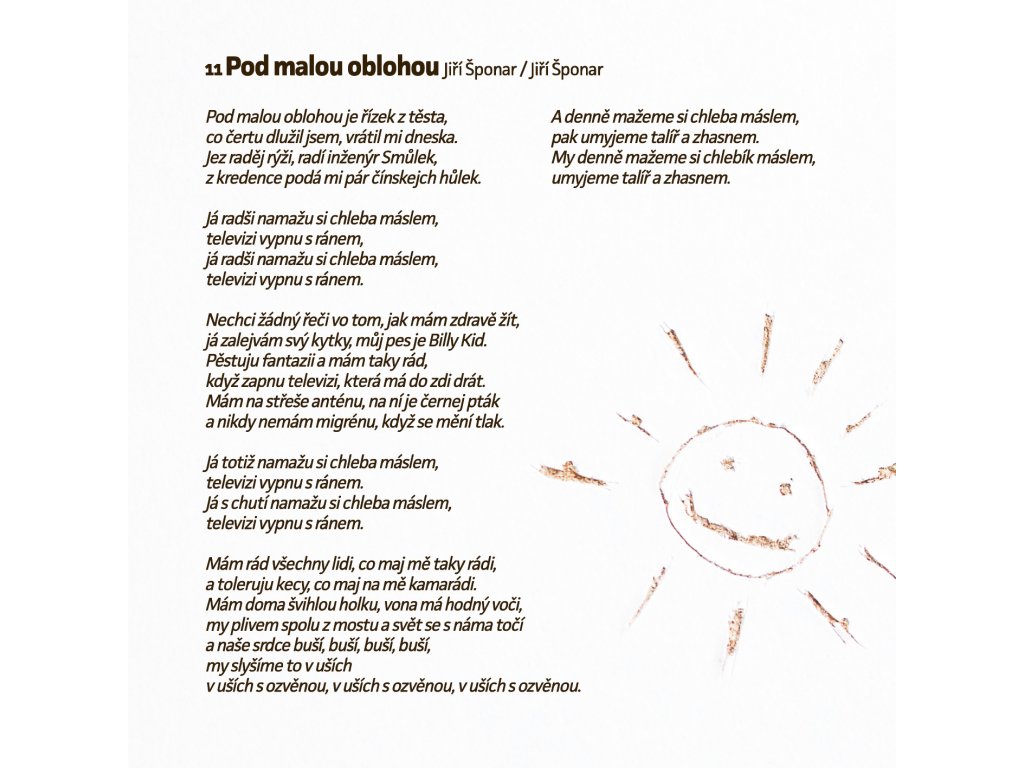 11 Pod malou oblohou Jiří Šponar / Jiří Šponar
Pod malou oblohou je řízek z těsta,
co čertu dlužil jsem, vrátil mi dneska.
Jez raděj rýži, radí inženýr Smůlek,
z kredence podá mi pár čínskejch hůlek.
Já radši namažu si chleba máslem,
televizi vypnu s ránem,
já radši namažu si chleba máslem,
televizi vypnu s ránem.
Nechci žádný řeči vo tom, jak mám zdravě žít,
já zalejvám svý kytky, můj pes je Billy Kid.
Pěstuju fantazii a mám taky rád,
když zapnu televizi, která má do zdi drát.
Mám na střeše anténu, na ní je černej pták
a nikdy nemám migrénu, když se mění tlak.
Já totiž namažu si chleba máslem,
televizi vypnu s ránem.
Já s chutí namažu si chleba máslem,
televizi vypnu s ránem.
Mám rád všechny lidi, co maj mě taky rádi,
a toleruju kecy, co maj na mě kamarádi.
Mám doma švihlou holku, vona má hodný voči,
my plivem spolu z mostu a svět se s náma točí
a naše srdce buší, buší, buší, buší,
my slyšíme to v uších
v uších s ozvěnou, v uších s ozvěnou, v uších s ozvěnou.
A denně mažeme si chleba máslem,
pak umyjeme talíř a zhasnem.
My denně mažeme si chlebík máslem,
umyjeme talíř a zhasnem.